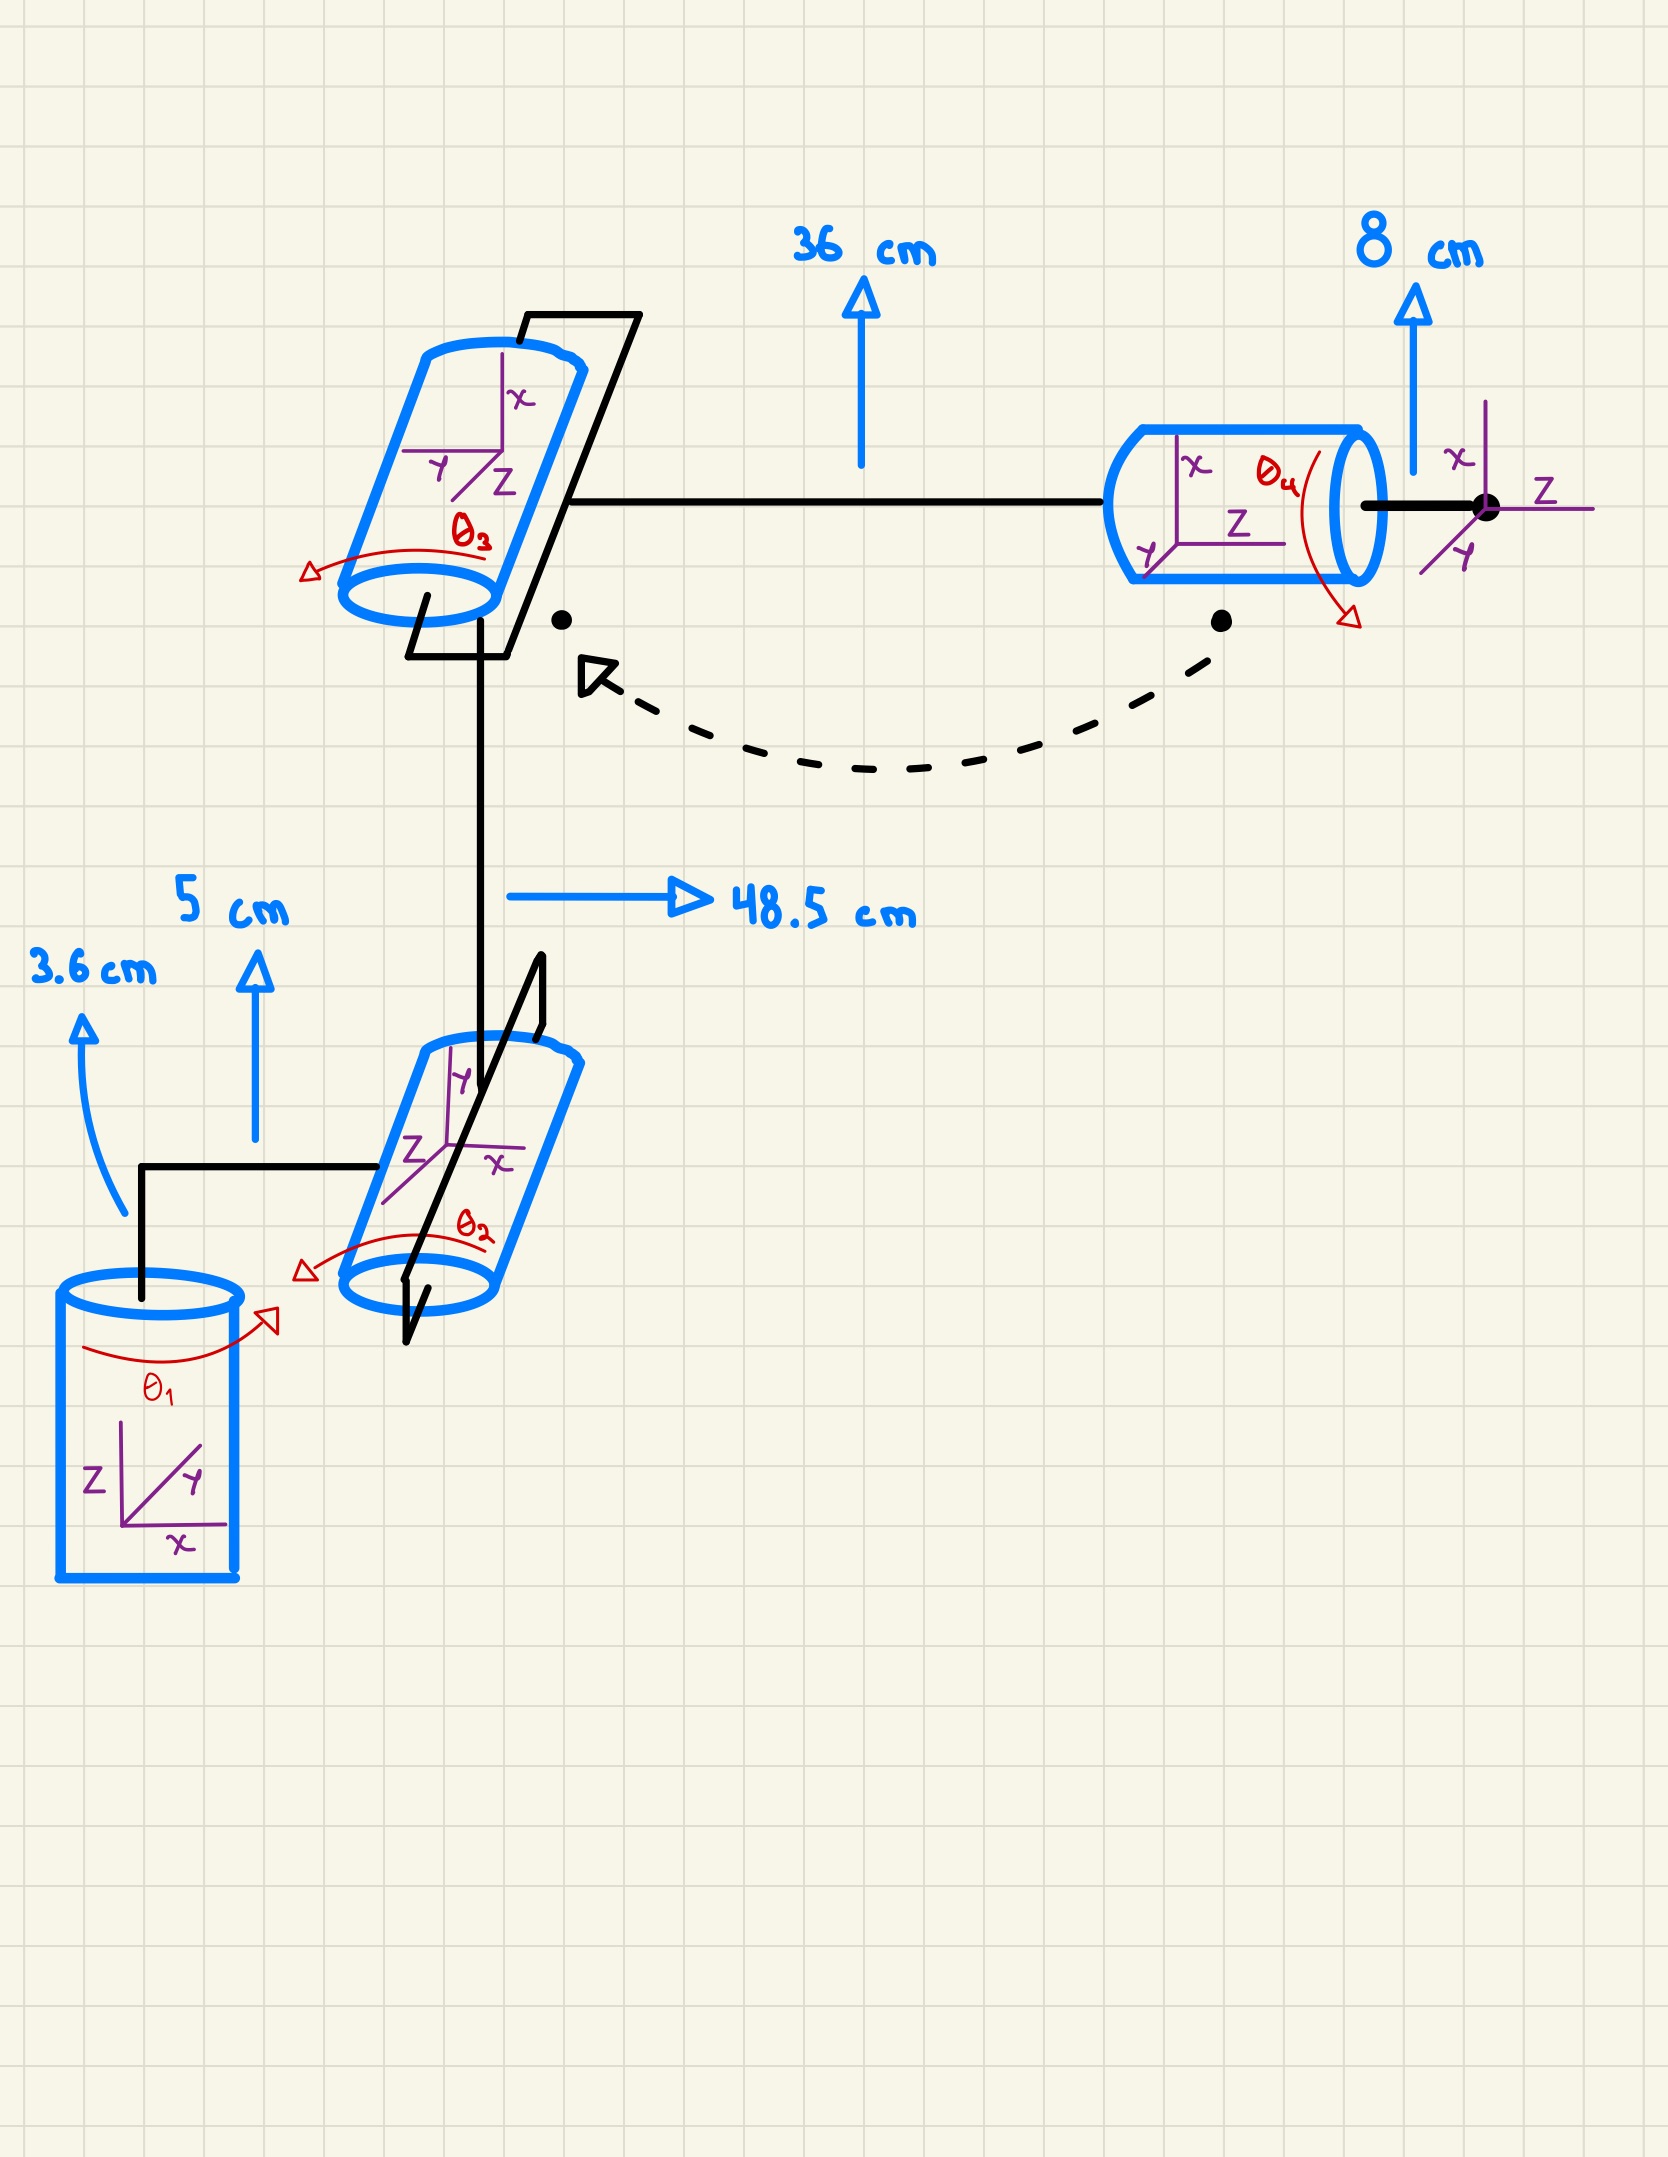 36 cm
8 cm
x
Y
Z
θ3
x
θ4
Z
Y
x
Z
Y
5 cm
3.6 cm
48.5 cm
Y
Z
x
θ2
θ1
Z
Y
x